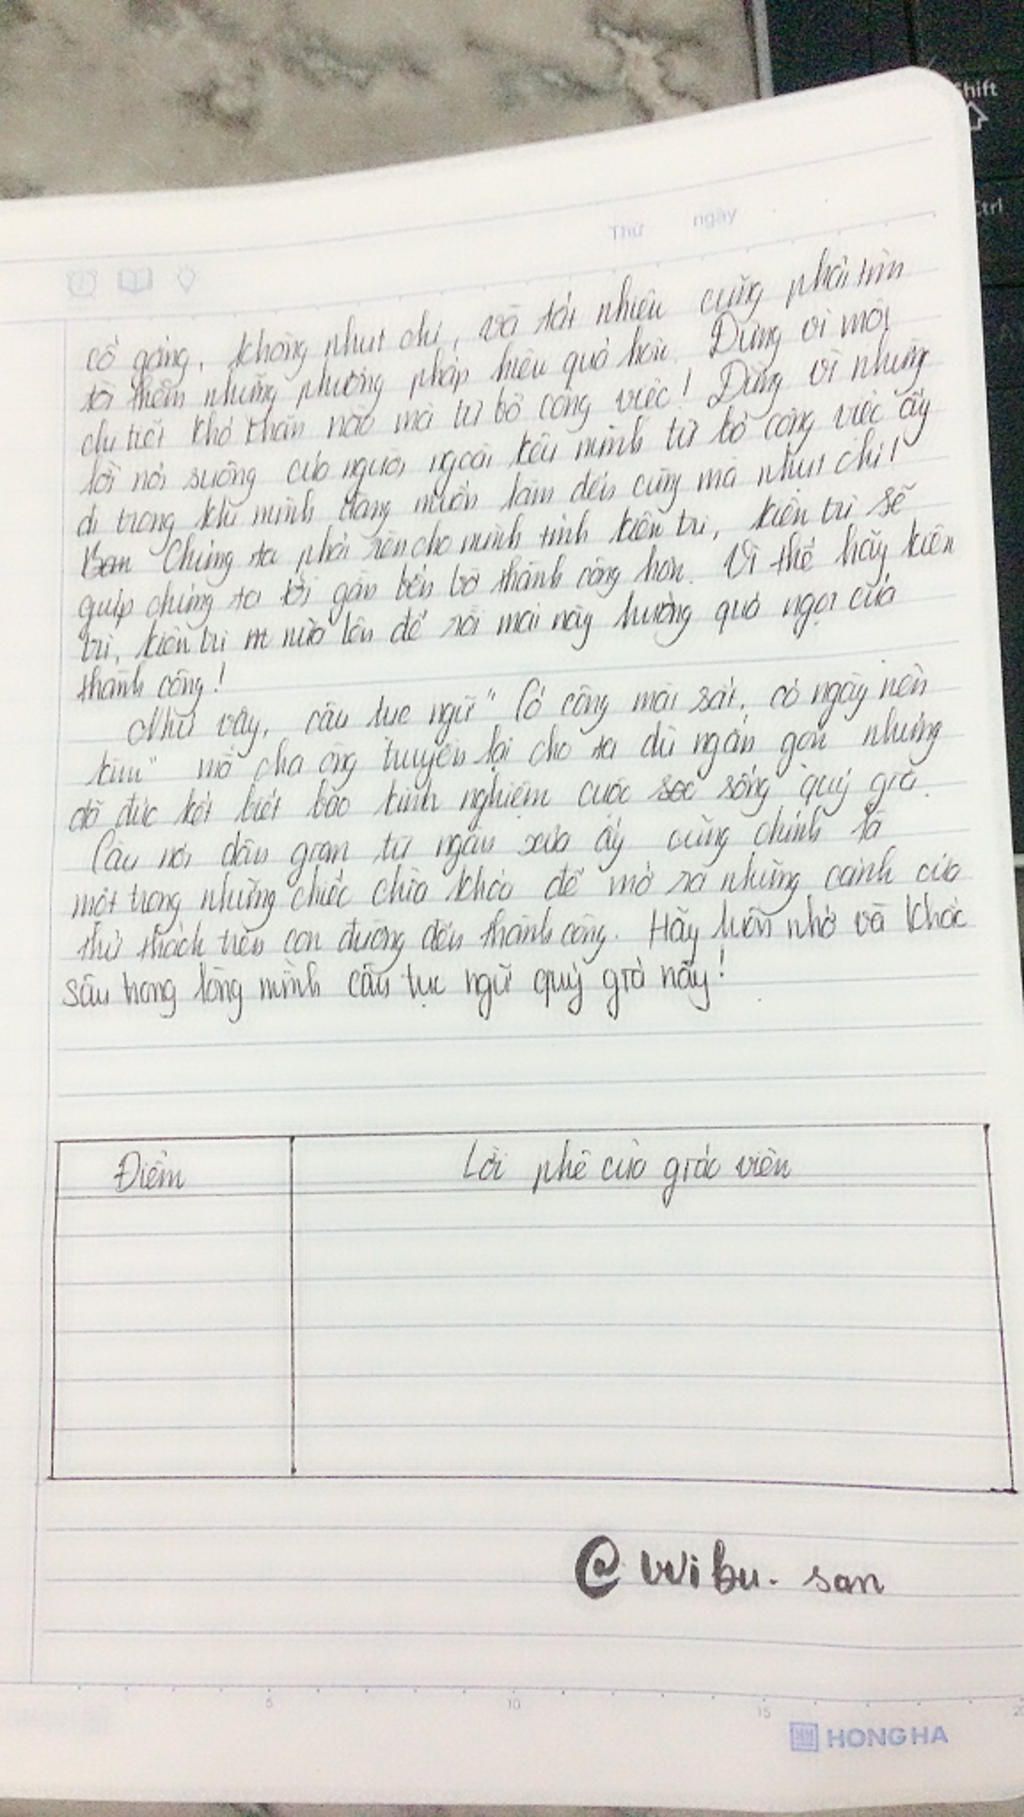 Shift
Ctrl
Thứ ngày
cố gắng, không nhụt chí, và tất nhiên cũng phải tìm
tòi thêm những phương pháp hiệu quả hơn. Đừng vì một
chi tiết khó khăn nào mà từ bỏ công việc! Đừng vì những
lời nói suông của người ngoài kêu mình từ bỏ công việc ấy
đi trong khi mình đang muốn làm đến cùng mà nhụt chí!
Chúng ta phải rèn cho mình tính kiên trì, kiên trì sẽ
giúp chúng ta tới gần bến bờ thành công hơn. Vì thế hãy kiên
trì, kiên trì nữa lên để rồi mai này hưởng quả ngọt của
thành công!
Như vậy, câu tục ngữ "Có công mài sắt, có ngày nên
kim" mà cha ông truyền lại cho ta dù ngắn gọn nhưng
đã đúc kết biết bao kinh nghiệm cuộc sống quý giá.
Câu nói dân gian từ ngàn xưa ấy cũng chính là
một trong những chiếc chìa khóa để mở ra những cánh cửa
thử thách trên con đường đến thành công. Hãy luôn nhớ và khắc
sâu trong lòng mình câu tục ngữ quý giá này!
Điểm
Lời phê của giáo viên
@wibu. san
5 10 15
HONG HA